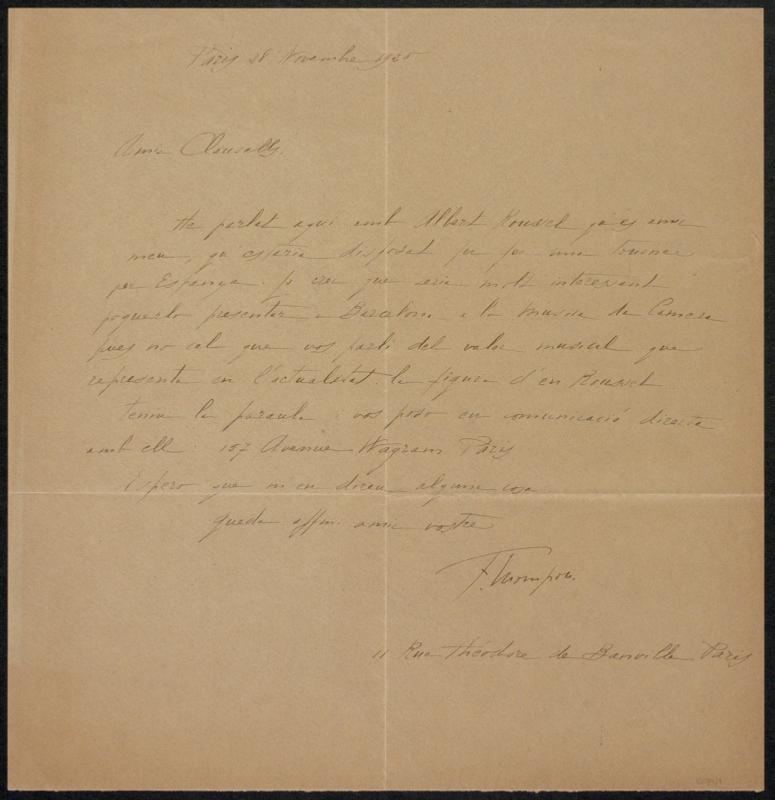 Paris 28 Novembre 1925
Amic Clausells.
He parlat aqui amb Albert Roussel ja es amic
meu, qu'estaria disposat per fer una tournee
per Espanya. Jo crec que seria molt interessant
poguerlo presentar a Barcelona a la Musica da Camera
pues no cal que vos parli del valor musical que
representa en l'actualitat la figura d'en Roussel
Teniu la paraula: vos poso en comunicació directa
amb ell 157 Avenue Wagram Paris
Espero que m'en direu alguna cosa
queda affm. amic vostre
F. Mompou.
11 Rue Théodore de Banville Paris